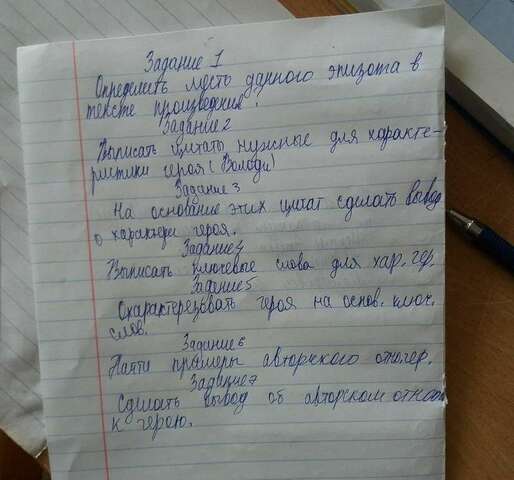 Задание 1
Определить место данного эпизота в
тексте произведения.
Задание 2
Выписать цитаты нужные для характе-
ристики героя (Володи)
Задание 3
На основание этих цитат сделать вывод
о характере героя.
Задание 4
Выписать ключевые слова для хар. гер.
Задание 5
Охарактерезовать героя на основ. ключ.
слов.
Задание 6
Найти примеры авторского отн. гер.
Задание 7
Сделать вывод об авторском
к герою.